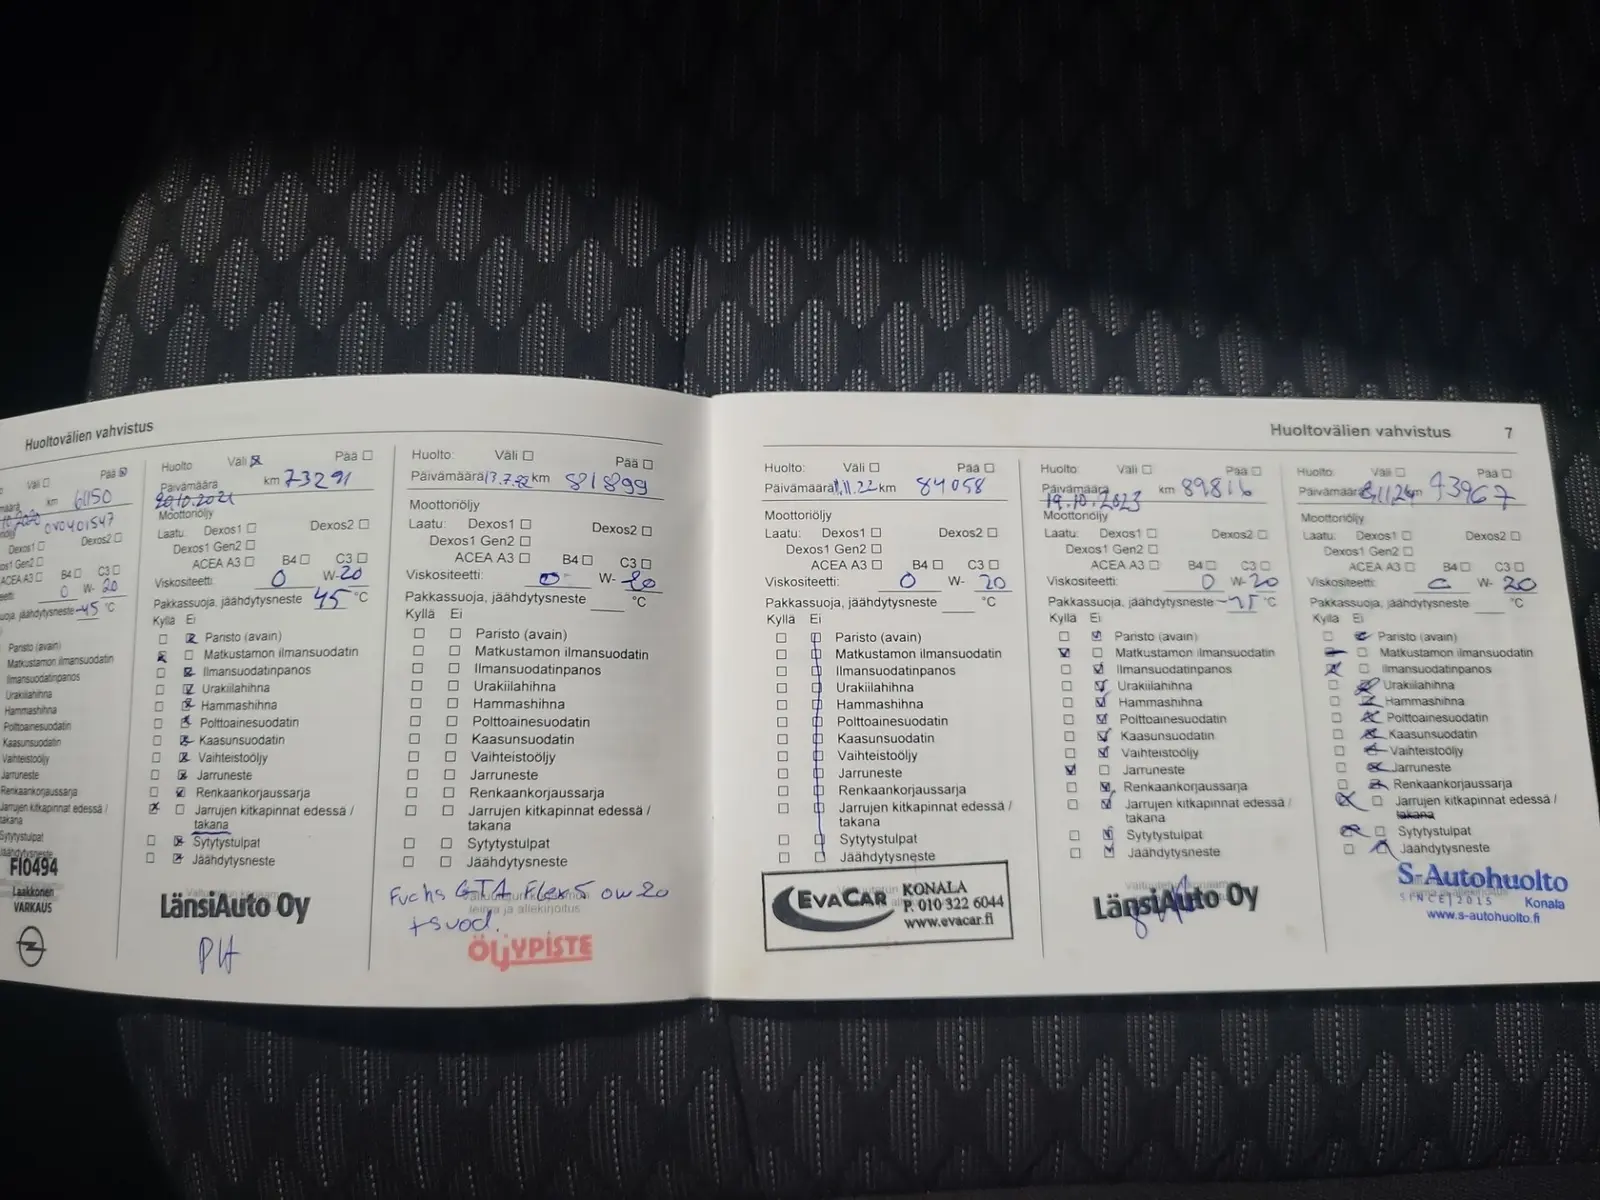 Huoltovälien vahvistus
Väli Pää
km 61150
10.2020 0V0401547
Dexos1 Dexos2
Dexos1 Gen2
ACEA A3 B4 C3
0 W-20
jäähdytysneste -45 °C
Paristo (avain)
Matkustamon ilmansuodatin
Ilmansuodatinpanos
Urakiilahihna
Hammashihna
Polttoainesuodatin
Kaasunsuodatin
Vaihteistoöljy
Jarruneste
Renkaankorjaussarja
Jarrujen kitkapinnat edessä /
takana
Sytytystulpat
Jäähdytysneste
FI0494
Laakkonen
VARKAUS
Huolto Väli Pää
Päivämäärä km 73291
20.10.2021
Moottoriöljy
Laatu: Dexos1 Dexos2
Dexos1 Gen2
ACEA A3 B4 C3
Viskositeetti: 0 W-20
Pakkassuoja, jäähdytysneste 45 °C
Kyllä Ei
Paristo (avain)
Matkustamon ilmansuodatin
Ilmansuodatinpanos
Urakiilahihna
Hammashihna
Polttoainesuodatin
Kaasunsuodatin
Vaihteistoöljy
Jarruneste
Renkaankorjaussarja
Jarrujen kitkapinnat edessä /
takana
Sytytystulpat
Jäähdytysneste
LänsiAuto Oy
PH
Huolto: Väli Pää
Päivämäärä 13.7.22 km 81899
Moottoriöljy
Laatu: Dexos1 Dexos2
Dexos1 Gen2
ACEA A3 B4 C3
Viskositeetti: 0 W-20
Pakkassuoja, jäähdytysneste °C
Kyllä Ei
Paristo (avain)
Matkustamon ilmansuodatin
Ilmansuodatinpanos
Urakiilahihna
Hammashihna
Polttoainesuodatin
Kaasunsuodatin
Vaihteistoöljy
Jarruneste
Renkaankorjaussarja
Jarrujen kitkapinnat edessä /
takana
Sytytystulpat
Jäähdytysneste
Fuchs GTA Flex 5 0w20
leima ja allekirjoitus
+suod.
ÖLJYPISTE
Huoltovälien vahvistus 7
Huolto: Väli Pää
Päivämäärä 1.11.22 km 84058
Moottoriöljy
Laatu: Dexos1 Dexos2
Dexos1 Gen2
ACEA A3 B4 C3
Viskositeetti: 0 W-20
Pakkassuoja, jäähdytysneste °C
Kyllä Ei
Paristo (avain)
Matkustamon ilmansuodatin
Ilmansuodatinpanos
Urakiilahihna
Hammashihna
Polttoainesuodatin
Kaasunsuodatin
Vaihteistoöljy
Jarruneste
Renkaankorjaussarja
Jarrujen kitkapinnat edessä /
takana
Sytytystulpat
Jäähdytysneste
EVACAR KONALA
P. 010 322 6044
www.evacar.fi
Huolto: Väli Pää
Päivämäärä km 89816
19.10.2023
Moottoriöljy
Laatu: Dexos1 Dexos2
Dexos1 Gen2
ACEA A3 B4 C3
Viskositeetti: 0 W-20
Pakkassuoja, jäähdytysneste °C
Kyllä Ei
Paristo (avain)
Matkustamon ilmansuodatin
Ilmansuodatinpanos
Urakiilahihna
Hammashihna
Polttoainesuodatin
Kaasunsuodatin
Vaihteistoöljy
Jarruneste
Renkaankorjaussarja
Jarrujen kitkapinnat edessä /
takana
Sytytystulpat
Jäähdytysneste
LänsiAuto Oy
Huolto: Väli Pää
Päivämäärä km 93967
Moottoriöljy
Laatu: Dexos1 Dexos2
Dexos1 Gen2
ACEA A3 B4 C3
Viskositeetti: 0 W-20
Pakkassuoja, jäähdytysneste °C
Kyllä Ei
Paristo (avain)
Matkustamon ilmansuodatin
Ilmansuodatinpanos
Urakiilahihna
Hammashihna
Polttoainesuodatin
Kaasunsuodatin
Vaihteistoöljy
Jarruneste
Renkaankorjaussarja
Jarrujen kitkapinnat edessä /
takana
Sytytystulpat
Jäähdytysneste
S-Autohuolto
SINCE 2015 Konala
www.s-autohuolto.fi